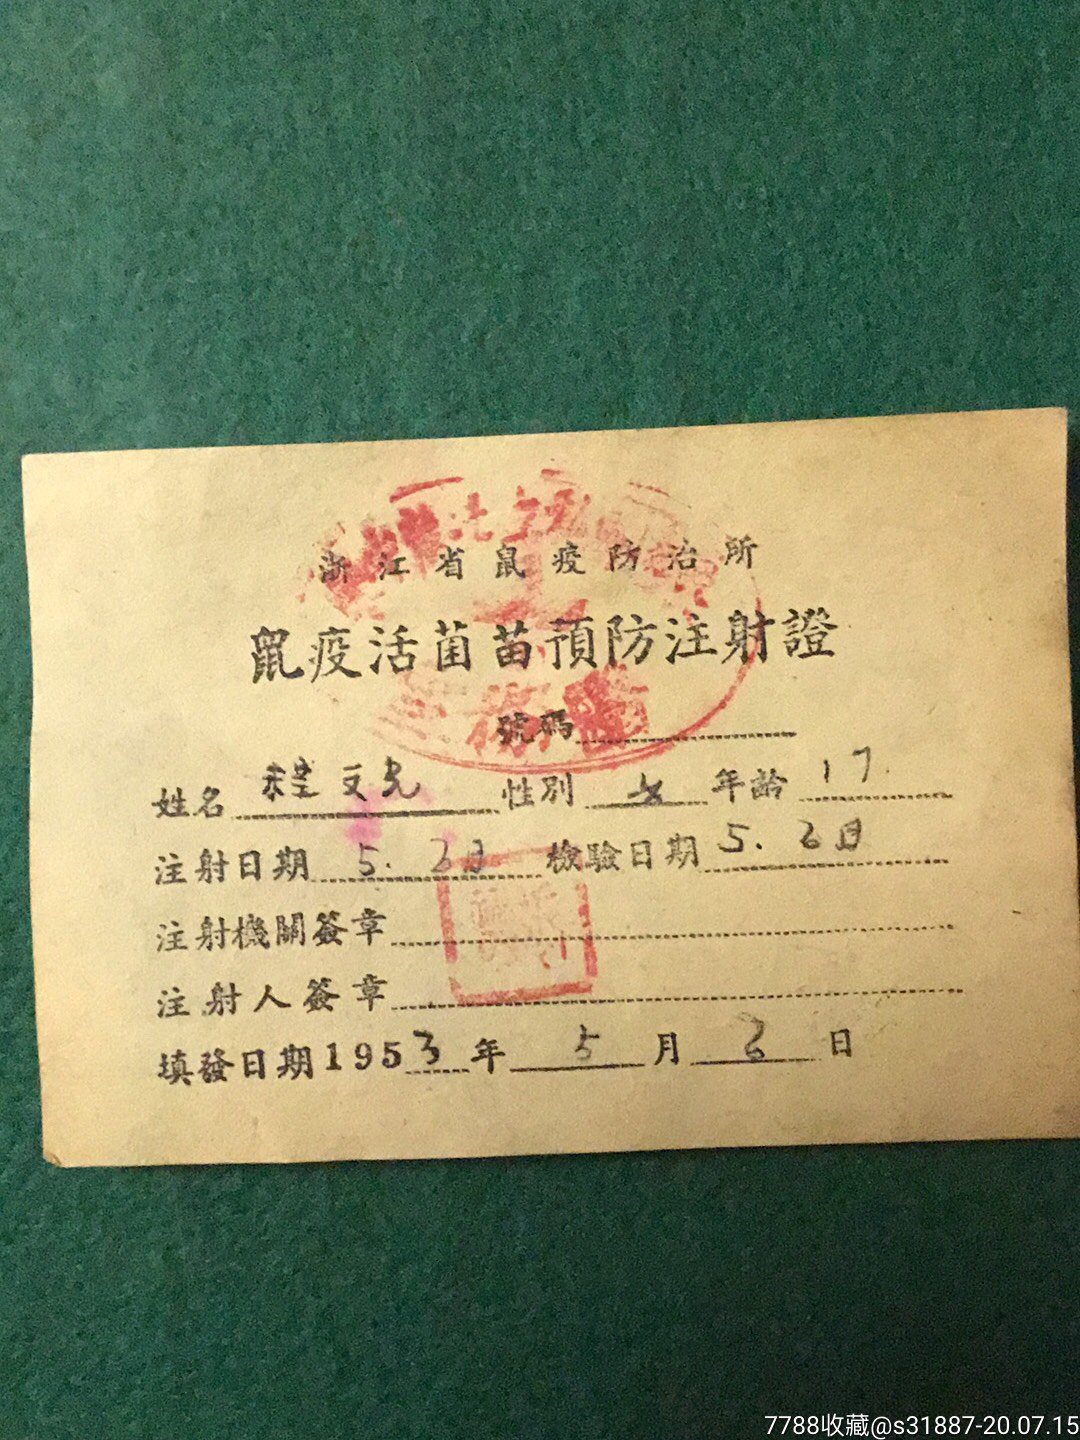 浙江省鼠疫防治所
鼠疫活菌苗預防注射證
號碼
姓名 程文光 性別 女 年齡 17
注射日期 5. 3日 檢驗日期 5. 3日
注射機關簽章
注射人簽章
填發日期1953年 5 月 3 日
7788收藏@s31887-20.07.15